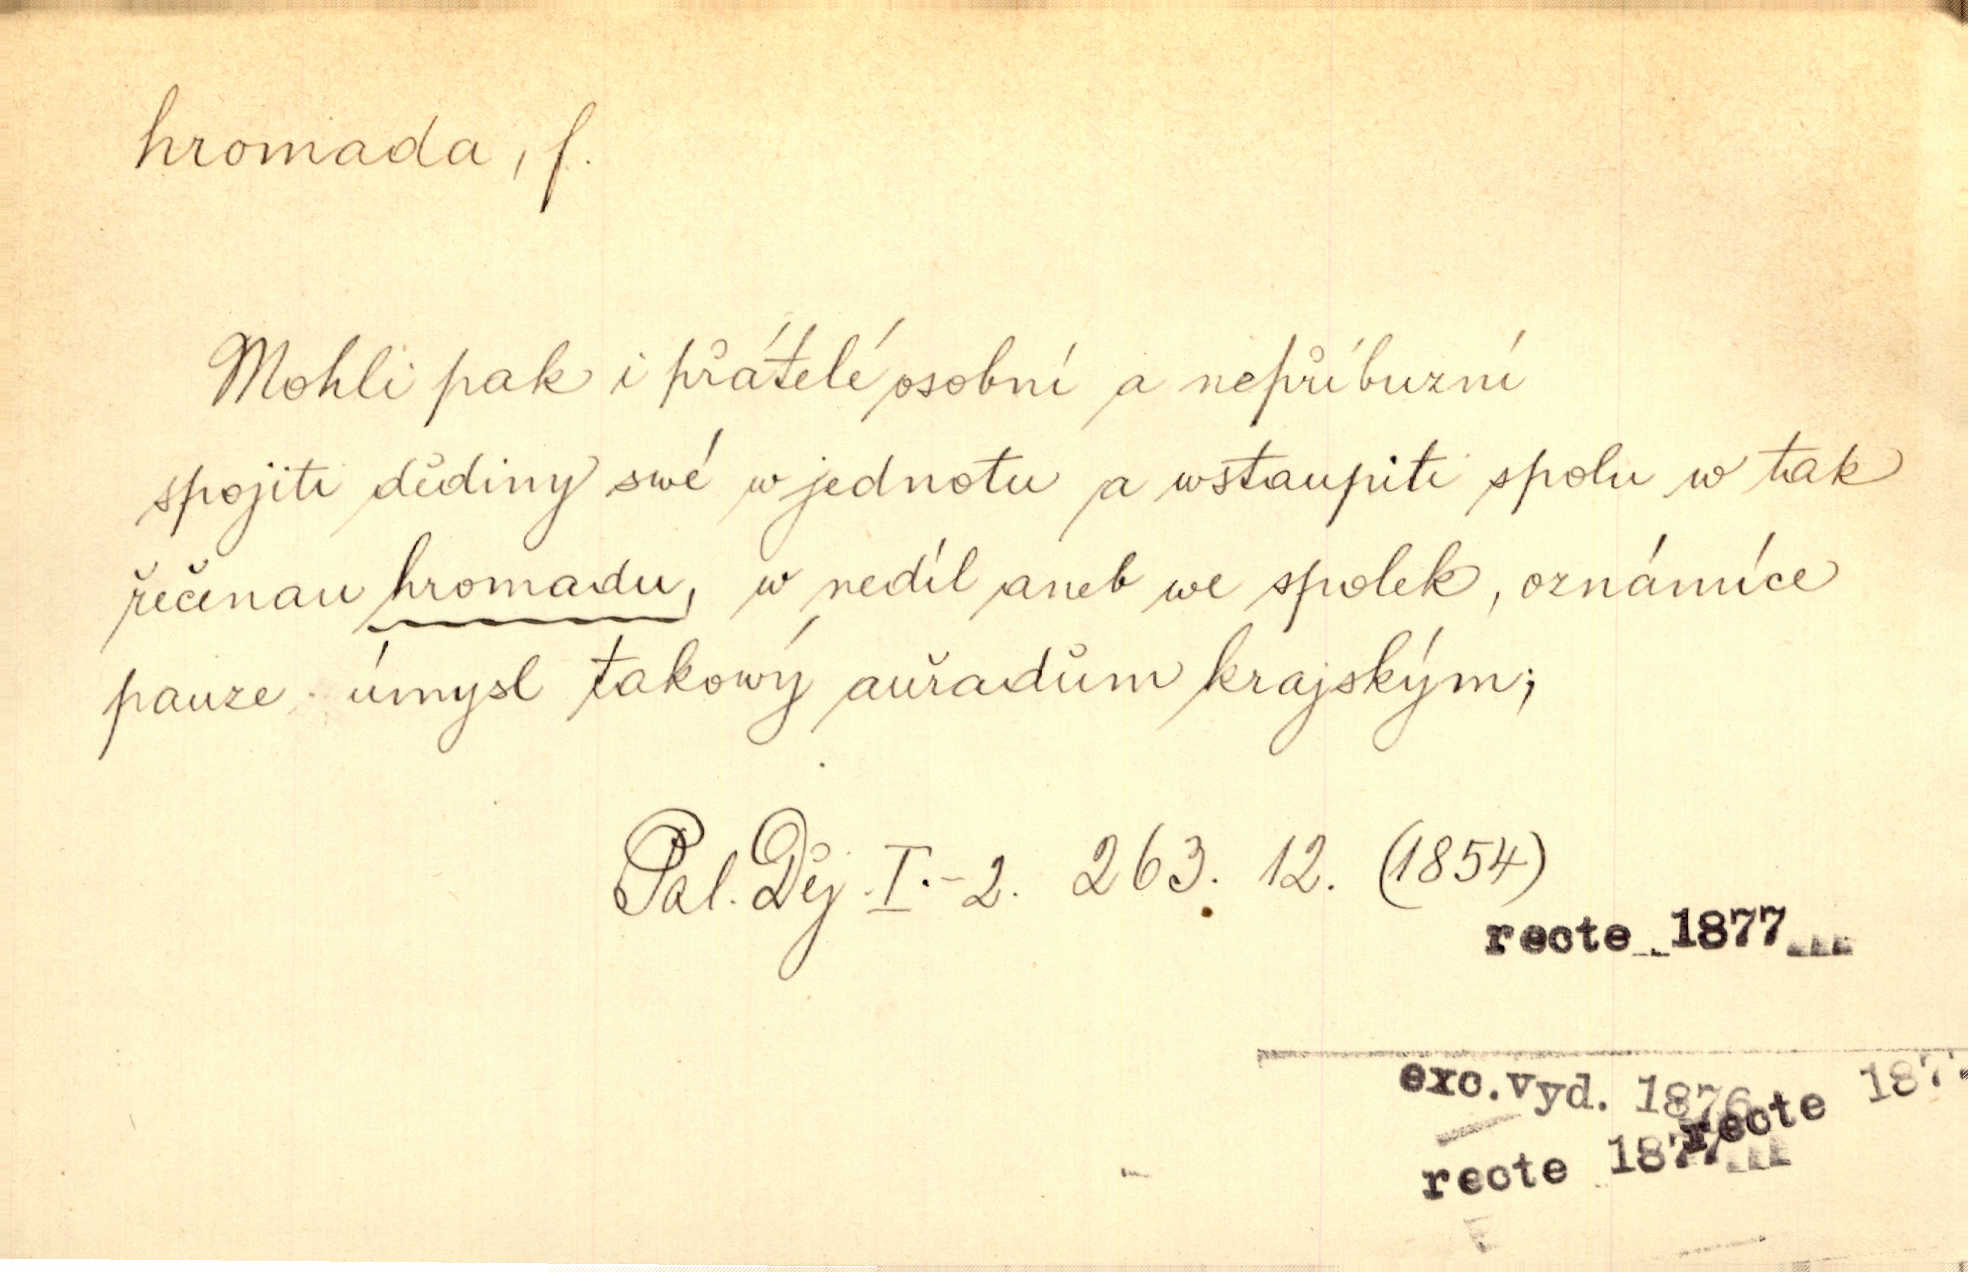 hromada, f.
Mohli pak i přátelé osobní a nepříbuzní
spojiti dědiny swé w jednotu a wstaupiti spolu w tak
řečenau hromadu, w nedíl aneb we spolek, oznámíce
pauze úmysl takowý auřadům krajským;
Pal. Děj. I.-2. 263. 12. (1854)
recte 1877
exc.vyd. 1876
recte 187
recte 1877